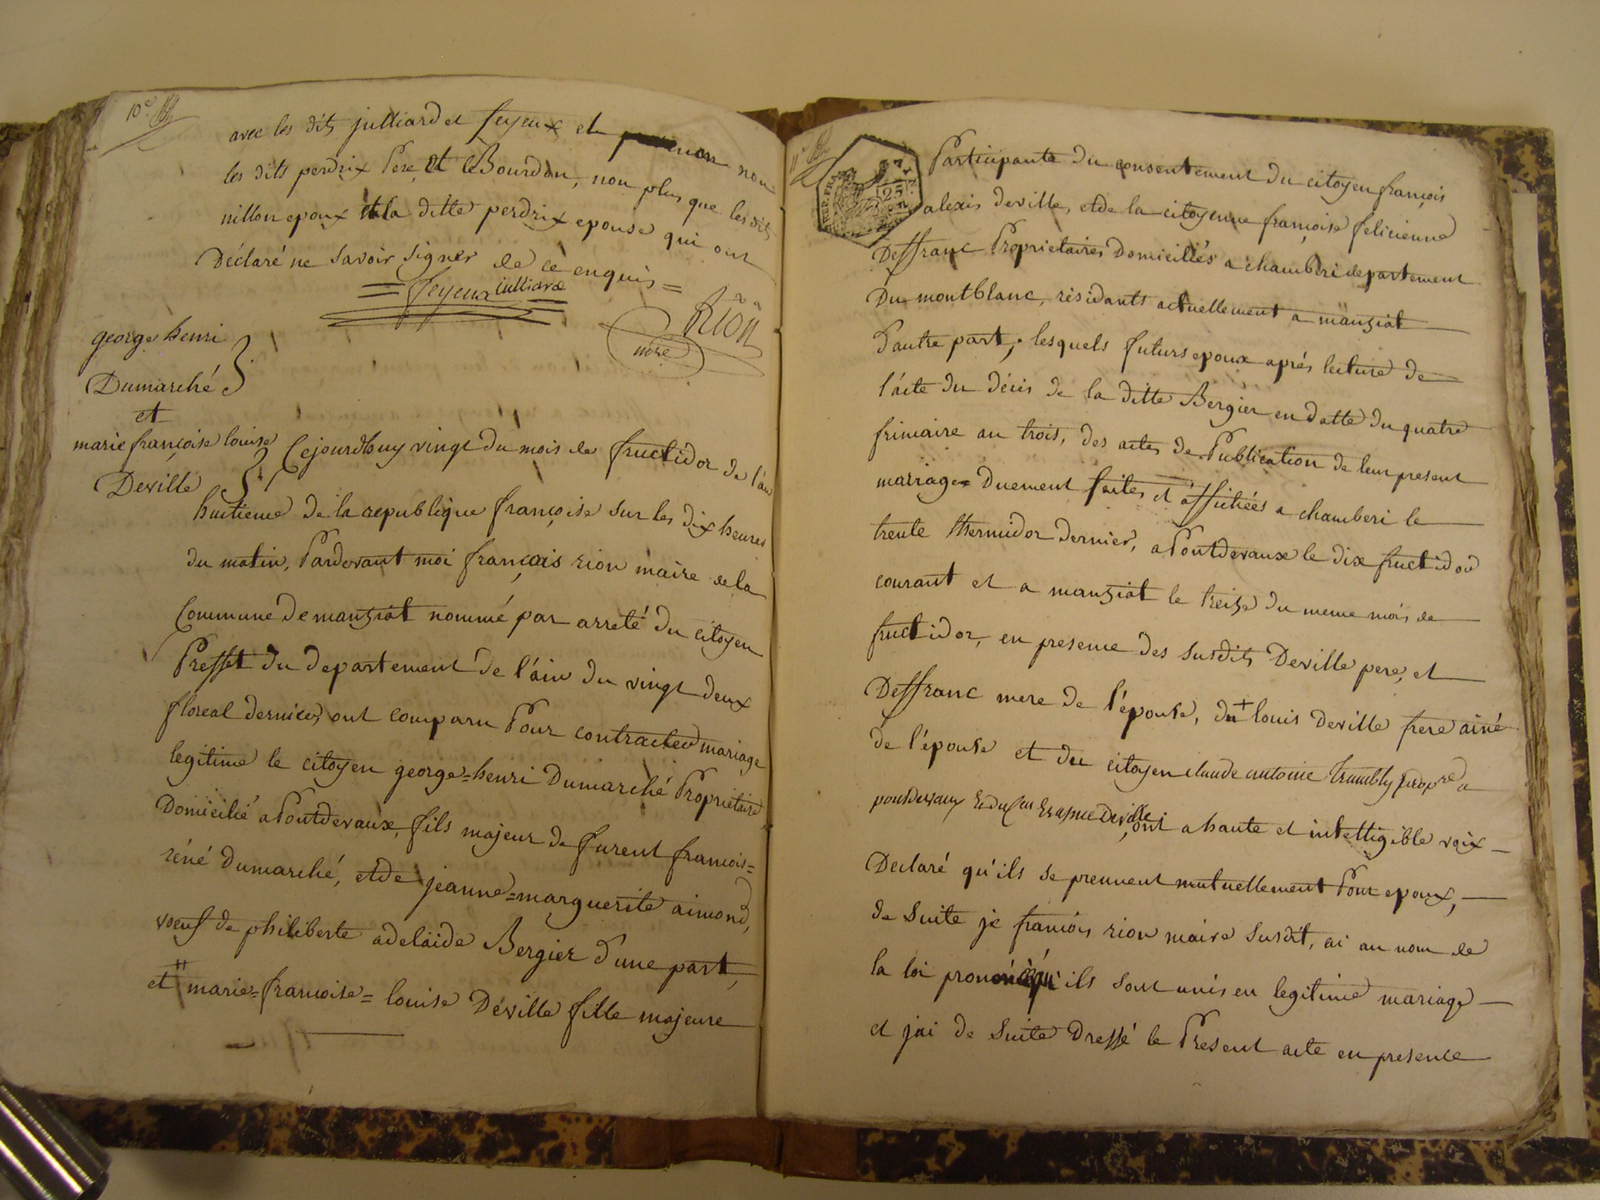 10e
avec les dits julliard et feyeux et non
les dits perdrix Pere, et leBourdon, non plus que les dits
nillon epoux et la ditte perdrix epouse qui ont
Déclaré ne savoir signer de ce enquis =
feyeux Julliard
Rion
mre
george henri
Dumarché
et
marie françoise louise
Deville
Cejourdhuy vingt du mois de fructidor de l'an
huitieme de la republique françoise sur les dix heures
du matin, Pardevant moi françois rion maire de la
Commune De manziat nommé par arreté du citoyen
Preffet du departement de l'ain du vingt deux
floreal dernier, ont comparu Pour contracter mariage
legitime le citoyen george=henri Dumarché Propriétaire
Domicilié a Pontdevaux, fils majeur de furent francois=
réné Dumarché, et de jeanne=marguerite aimond,
voeuf de philiberte adelaide Bergier d'une part,
et marie=francoise=louise Déville fille majeure
Participante du consentement du citoyen françois
alexis deville, et de la citoyenne françoise felicienne
Deffranc Proprietaires Domiciliés a chamberi departement
Du montblanc, résidants actuellement a manziat
D'autre part, lesquels futurs epoux aprés lecture de
l'acte du décis de la ditte Bergier en datte du quatre
frimaire an trois, des actes de Publication de leur present
mariage Duement faites et affichées a chamberi le
trente thermidor dernier, a Pontdevaux le dix fructidor
courant et a manziat le treize du meme mois de
fructidor, en presence des susdits Deville pere, et
Deffranc mere de l'épouse, du + louis deville frere ainé
de l'épouse et du citoyen claude antoine Trambly propre a
pontdevaux Et du Cen Erasme Deville, ont a haute et intelligible voix
Declaré qu'ils se prennent mutuellement Pour epoux,
de suite je francois rion maire susdit, ai au nom de
la loi prononcé qu'ils sont unis en legitime mariage
et jai de suite Dressé le Present acte en presence